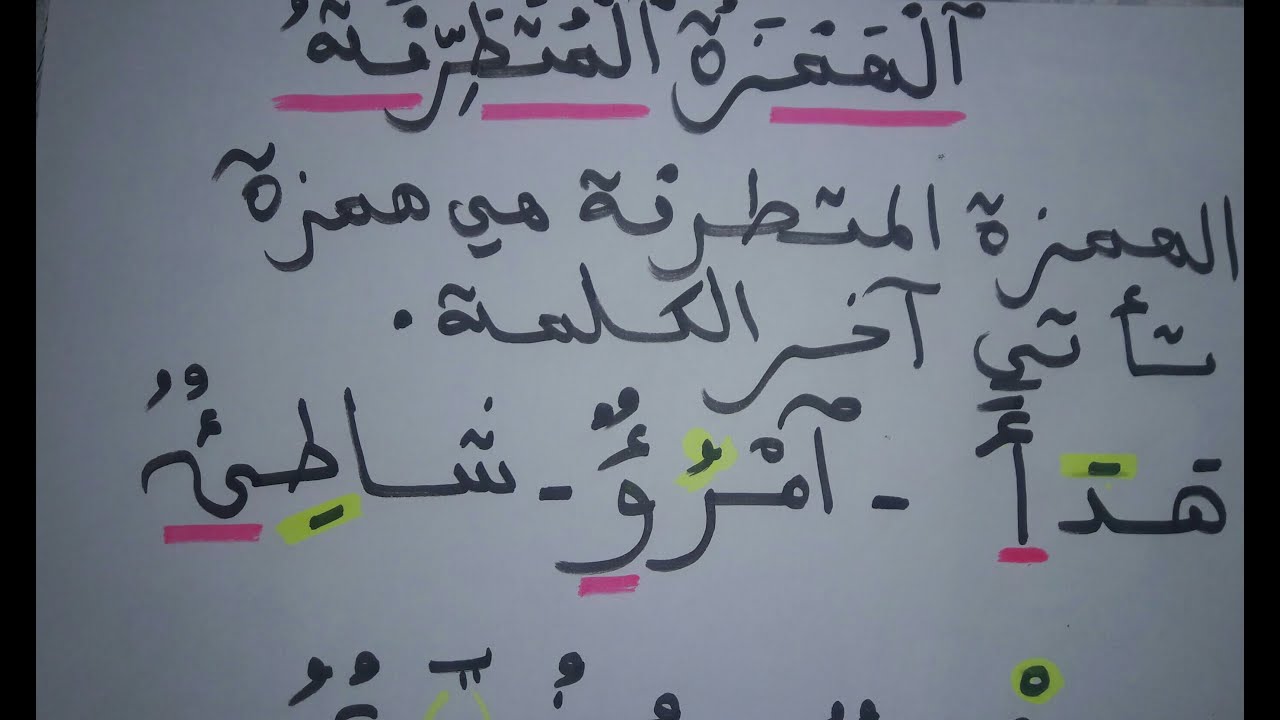 ٱلْهَمْزَةُ ٱلْمُتَطَرِّفَةُ
الهمزة المتطرفة هي همزة
تأتي آخر الكلمة.
قَدَأَ - ٱمْرُؤٌ - شاطِئٌ